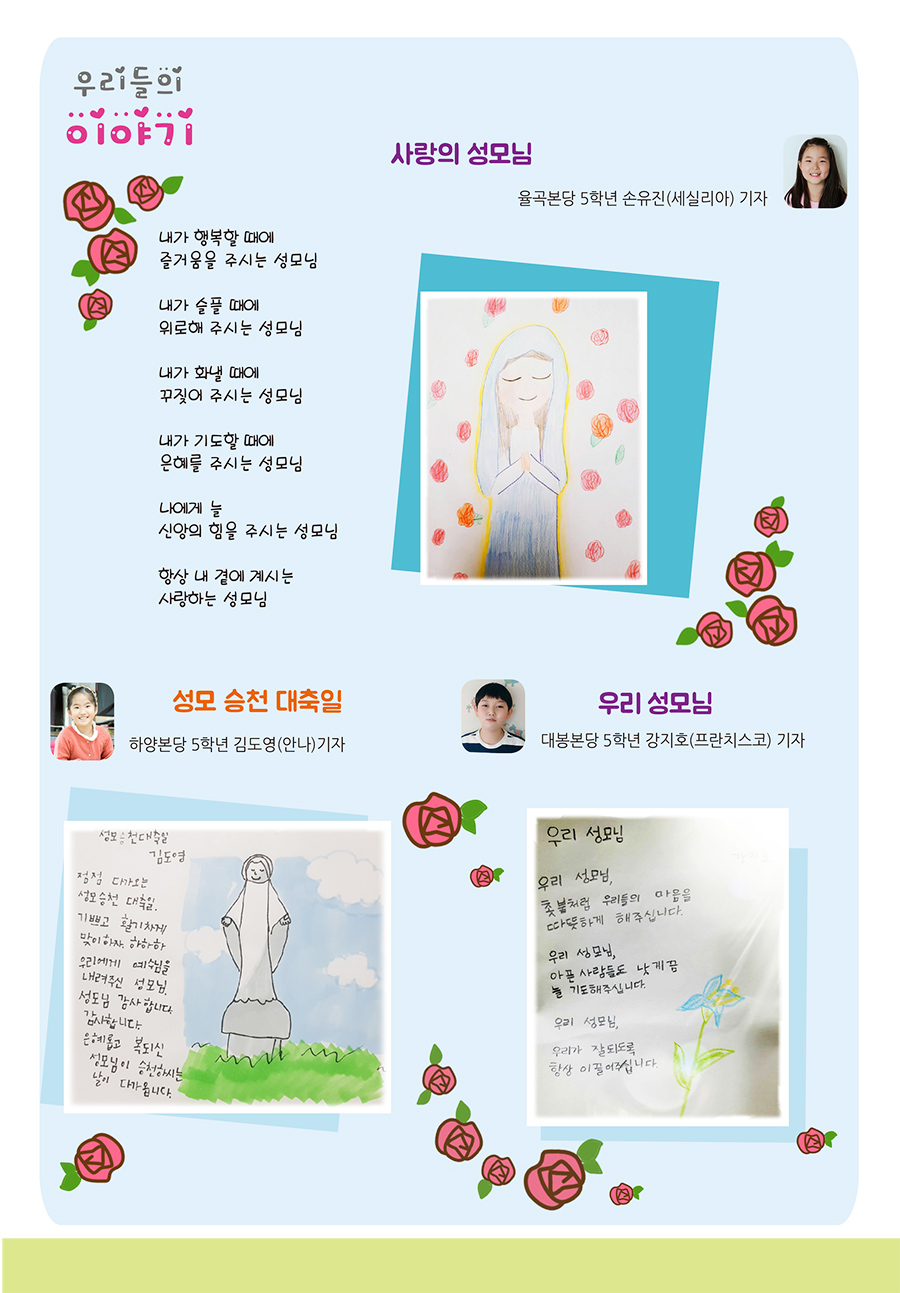 우리들의
이야기
사랑의 성모님
율곡본당 5학년 손유진(세실리아) 기자
내가 행복할 때에
즐거움을 주시는 성모님
내가 슬플 때에
위로해 주시는 성모님
내가 화낼 때에
꾸짖어 주시는 성모님
내가 기도할 때에
은혜를 주시는 성모님
나에게 늘
신앙의 힘을 주시는 성모님
항상 내 곁에 계시는
사랑하는 성모님
성모 승천 대축일
하양본당 5학년 김도영(안나)기자
성모승천대축일
김도영
점점 다가오는
성모승천 대축일.
기쁘고 활기차게
맞이하자. 하하하
우리에게 예수님을
내려주신 성모님.
성모님 감사합니다.
감사합니다.
은혜롭고 복되신
성모님이 승천하시는
날이 다가옵니다.
우리 성모님
대봉본당 5학년 강지호(프란치스코) 기자
우리 성모님
우리 성모님,
촛불처럼 우리들의 마음을
따뜻하게 해주십니다.
우리 성모님,
아픈 사람들도 낫게끔
늘 기도해주십니다.
우리 성모님,
우리가 잘되도록
항상 이끌어주십니다.